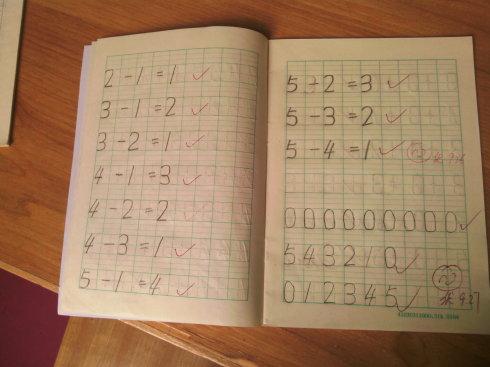 2-1=1
3-1=2
3-2=1
4-1=3
4-2=2
4-3=1
5-1=4
5-2=3
5-3=2
5-4=1
000000000
543210
012345
9.27